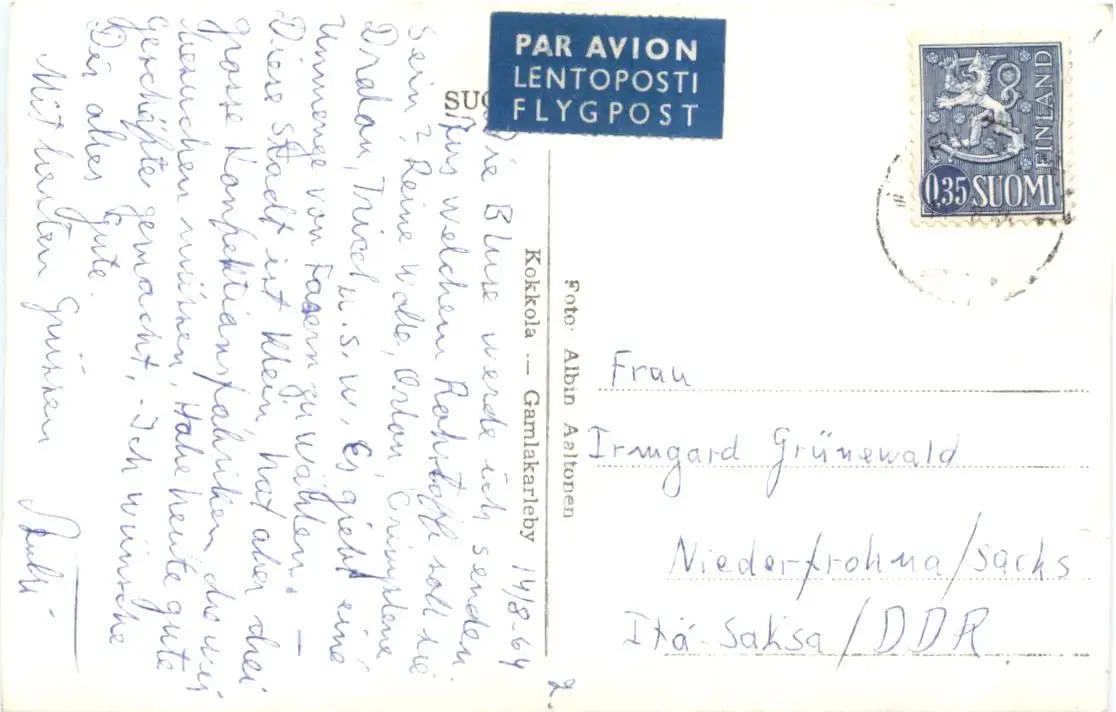 PAR AVION
LENTOPOSTI
FLYGPOST
FINLAND
0,35 SUOMI
SUO
Kokkola — Gamlakarleby
Foto: Albin Aaltonen
14/8-64
Die Bluse werde ich senden
Aus welchem Rohstoff soll sie
sein? Reine Wolle, Orlon, Crimplene
Dralon, Tricel u.s.w. Es giebt eine
Unmenge von Fasern zu wählen! —
Diese Stadt ist klein, hat aber drei
grosse Konfektionsfabriken die wir
besuchen müssen. Habe heute gute
geschäfte gemacht. Ich wünsche
Dir alles Gute.
Mit besten Grüssen
Frau
Irmgard Grünewald
Niederfrohna/Sachs
Itä-Saksa/DDR
2.